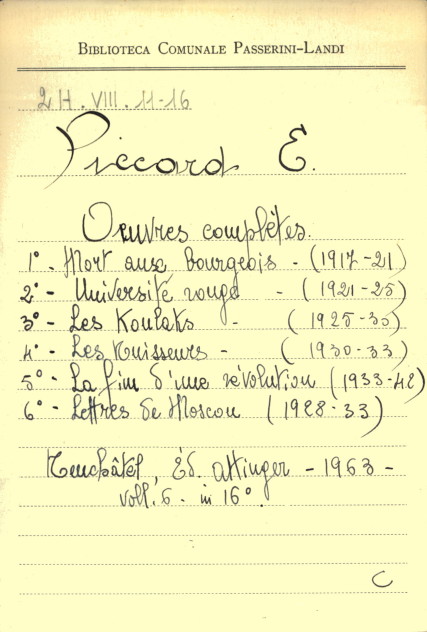 BIBLIOTECA COMUNALE PASSERINI-LANDI
2H. VIII. 11-16
Piccard E.
Oeuvres complètes.
1° - Mort aux bourgeois - (1917-21)
2° - Université rouge - (1921-25)
3° - Les Koulaks - (1925-30)
4° - Les Nuisseurs - (1930-33)
5° - La fin d'une révolution (1933-42)
6° - Lettres de Moscou (1928-33)
Neuchâtel, Éd. Attinger - 1963 -
voll. 6 - in 16°.
C